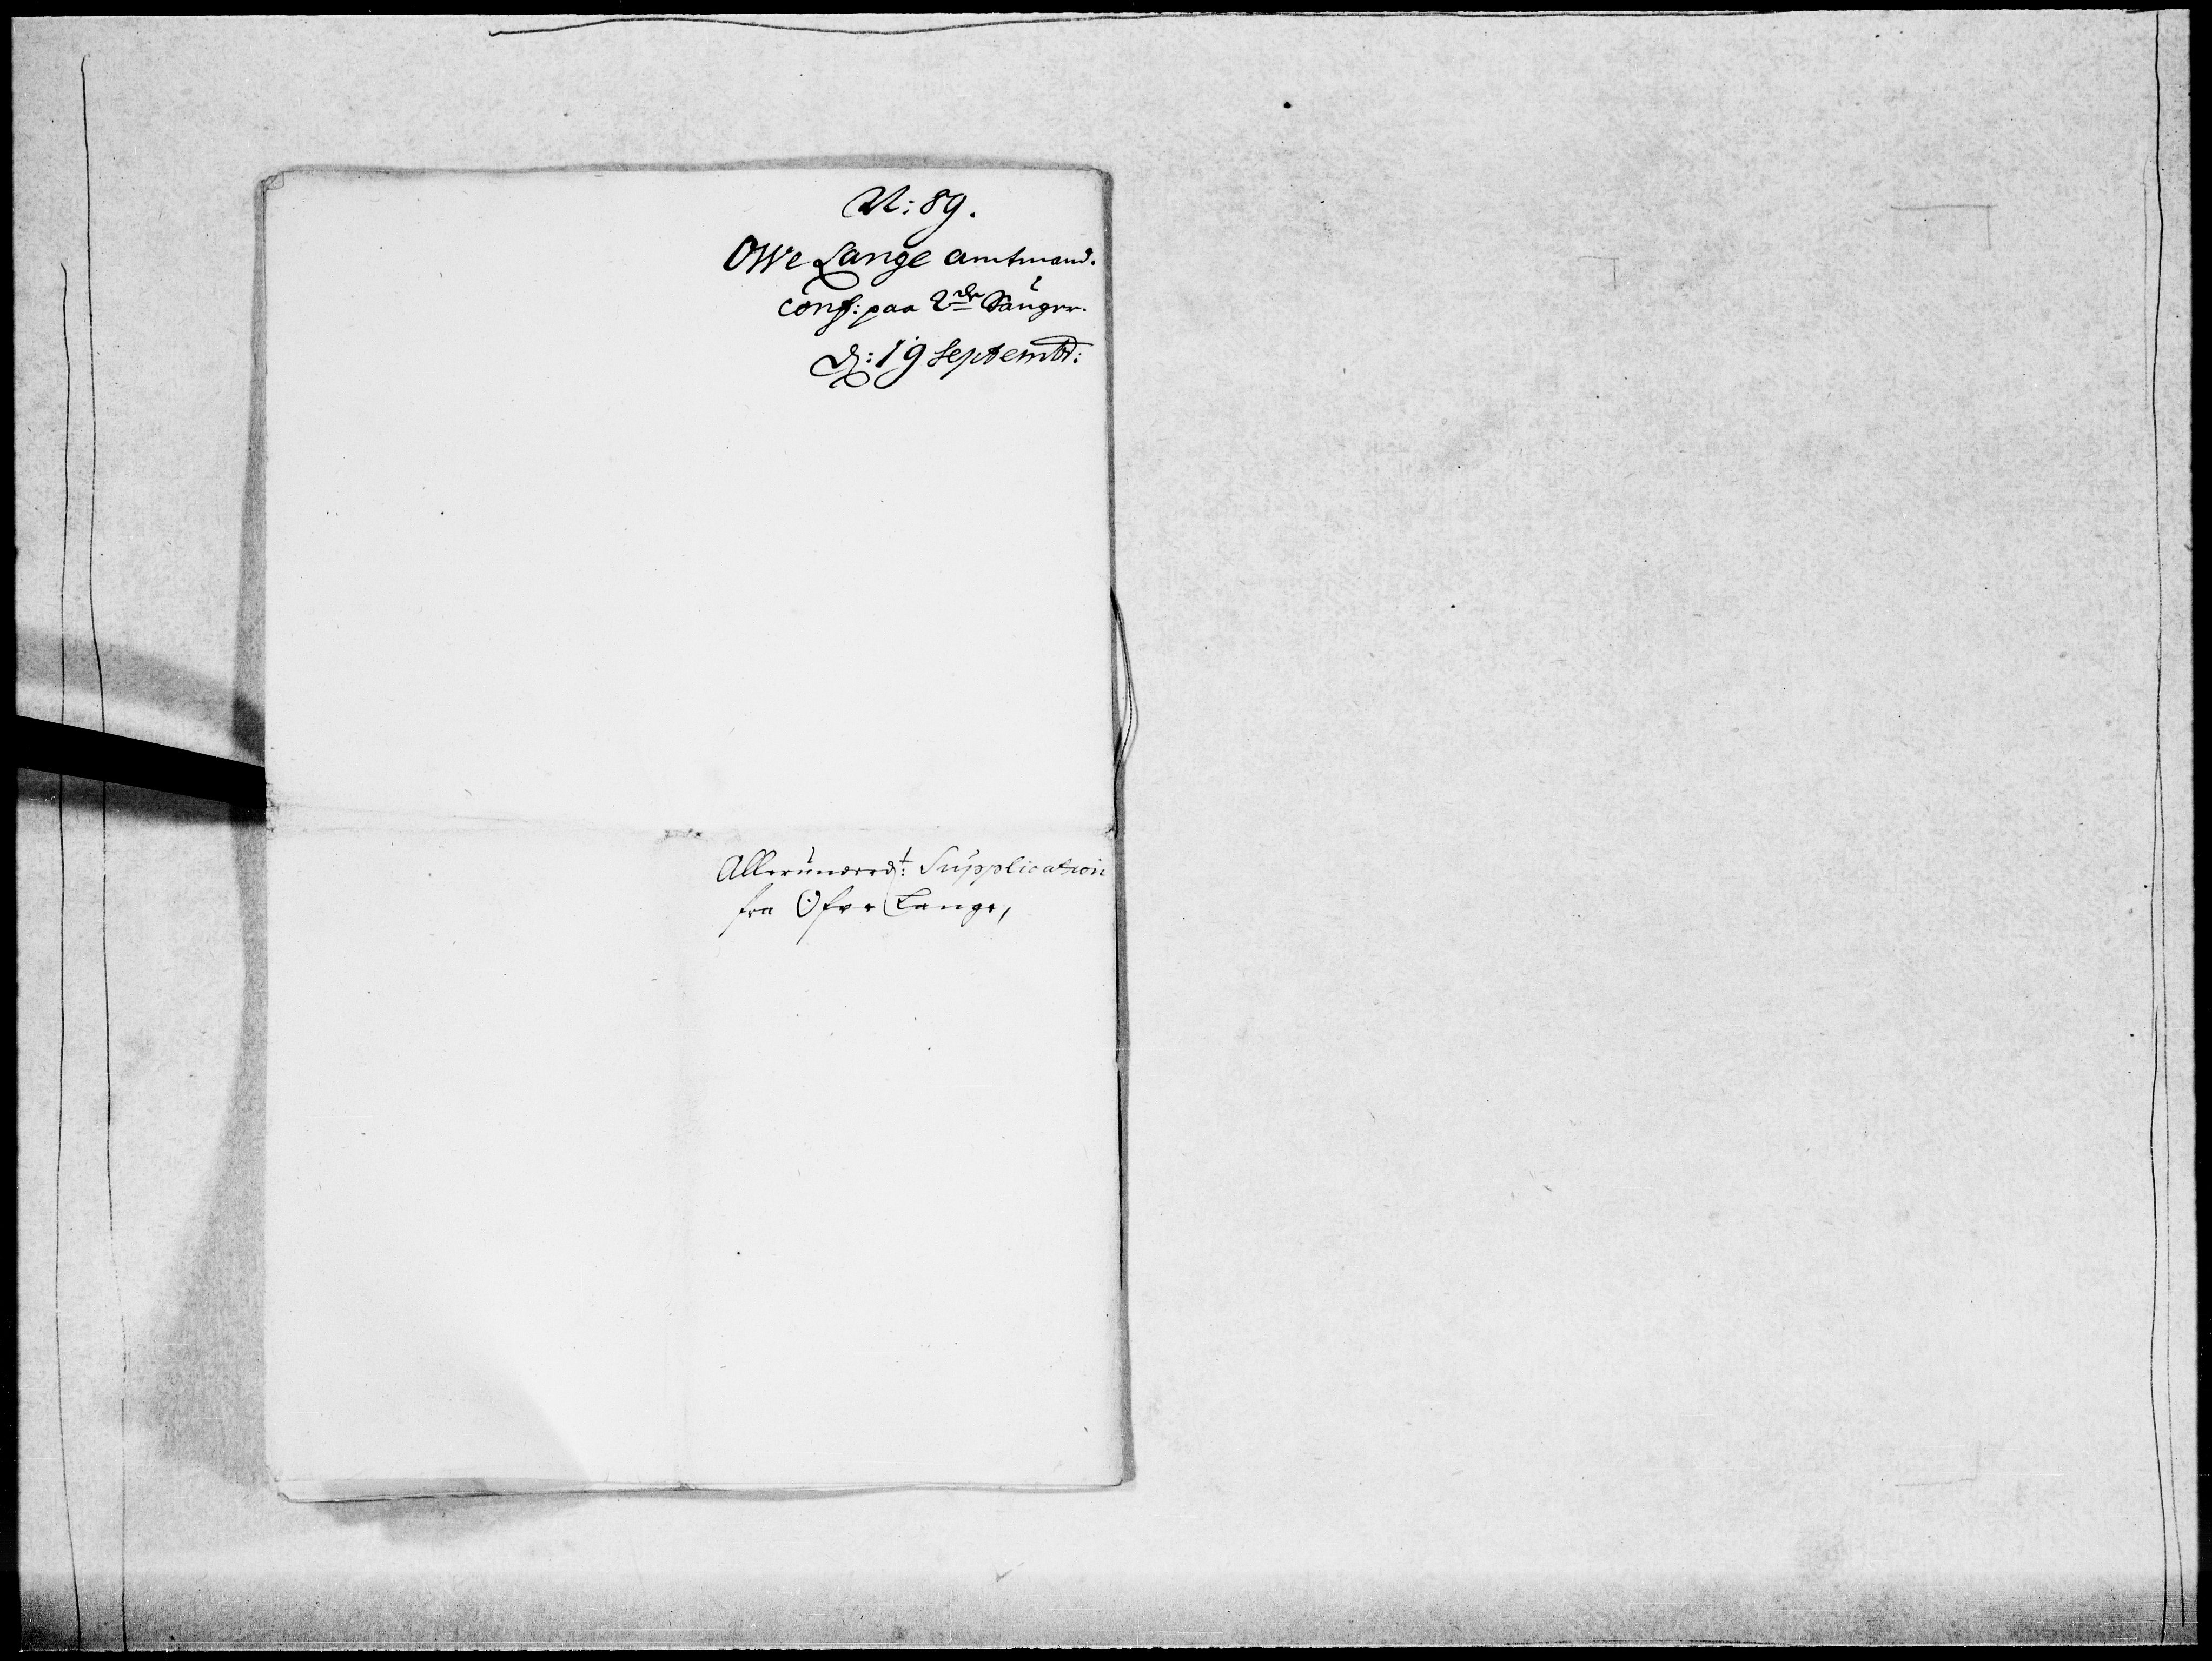 N: 89.
Owe Lange amtmand.
conf: paa 2de Sauger.
d: 19 Septembr:
Allerunderd:t Supplication
fra Ofve Lange,